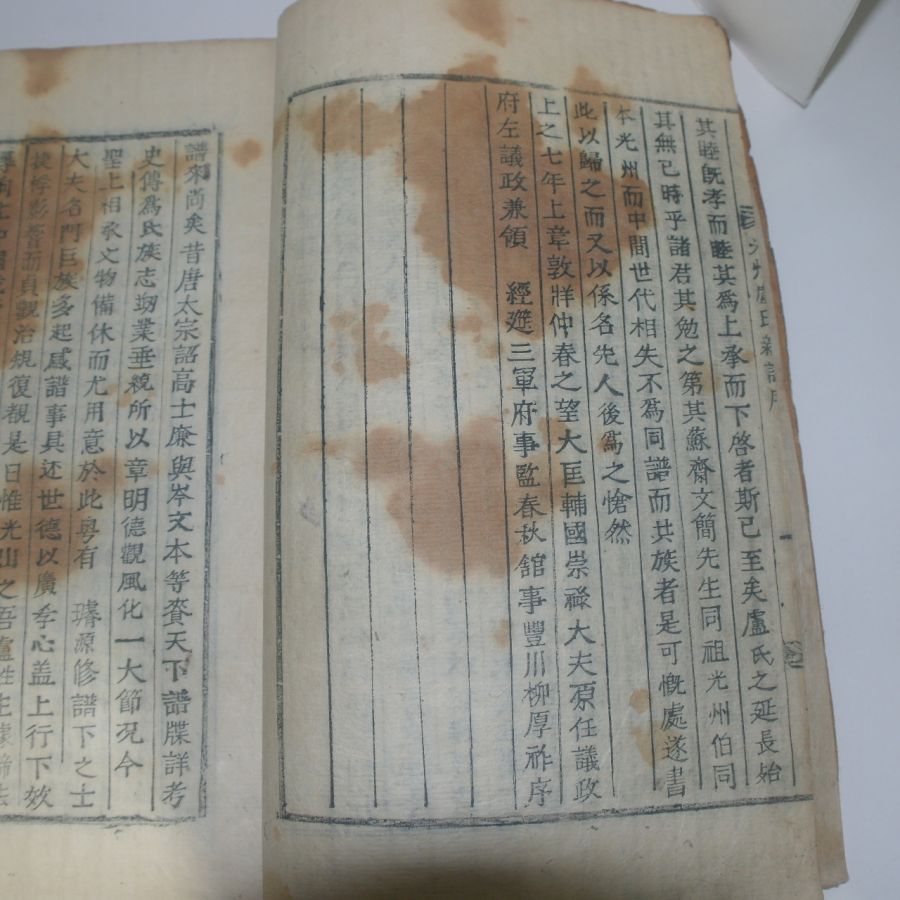 其睦既孝而睦其爲上承而下啓者斯已至矣盧氏之延長始
其無已時乎諸君其勉之第其蘇齋文簡先生同祖光州伯同
本光州而中間世代相失不爲同譜而共族者是可慨處遂書
此以歸之而又以係名先人後爲之愴然
上之七年上章敦牂仲春之望大匡輔國崇祿大夫原任議政
府左議政兼領 經筵三軍府事監春秋舘事豐川柳厚祚序
譜來尚矣昔唐太宗詔高士廉與岑文本等賚天下譜牒詳考
史傳爲氏族志刱業垂統所以章明德觀風化一大節況今
聖上相承文物備休而尤用意於此粤有 璿源修譜下之士
大夫名門巨族多起感譜事具述世德以廣孝心盖上行下效
捷乎影響而貞觀治規復覩是日惟光山之吾盧